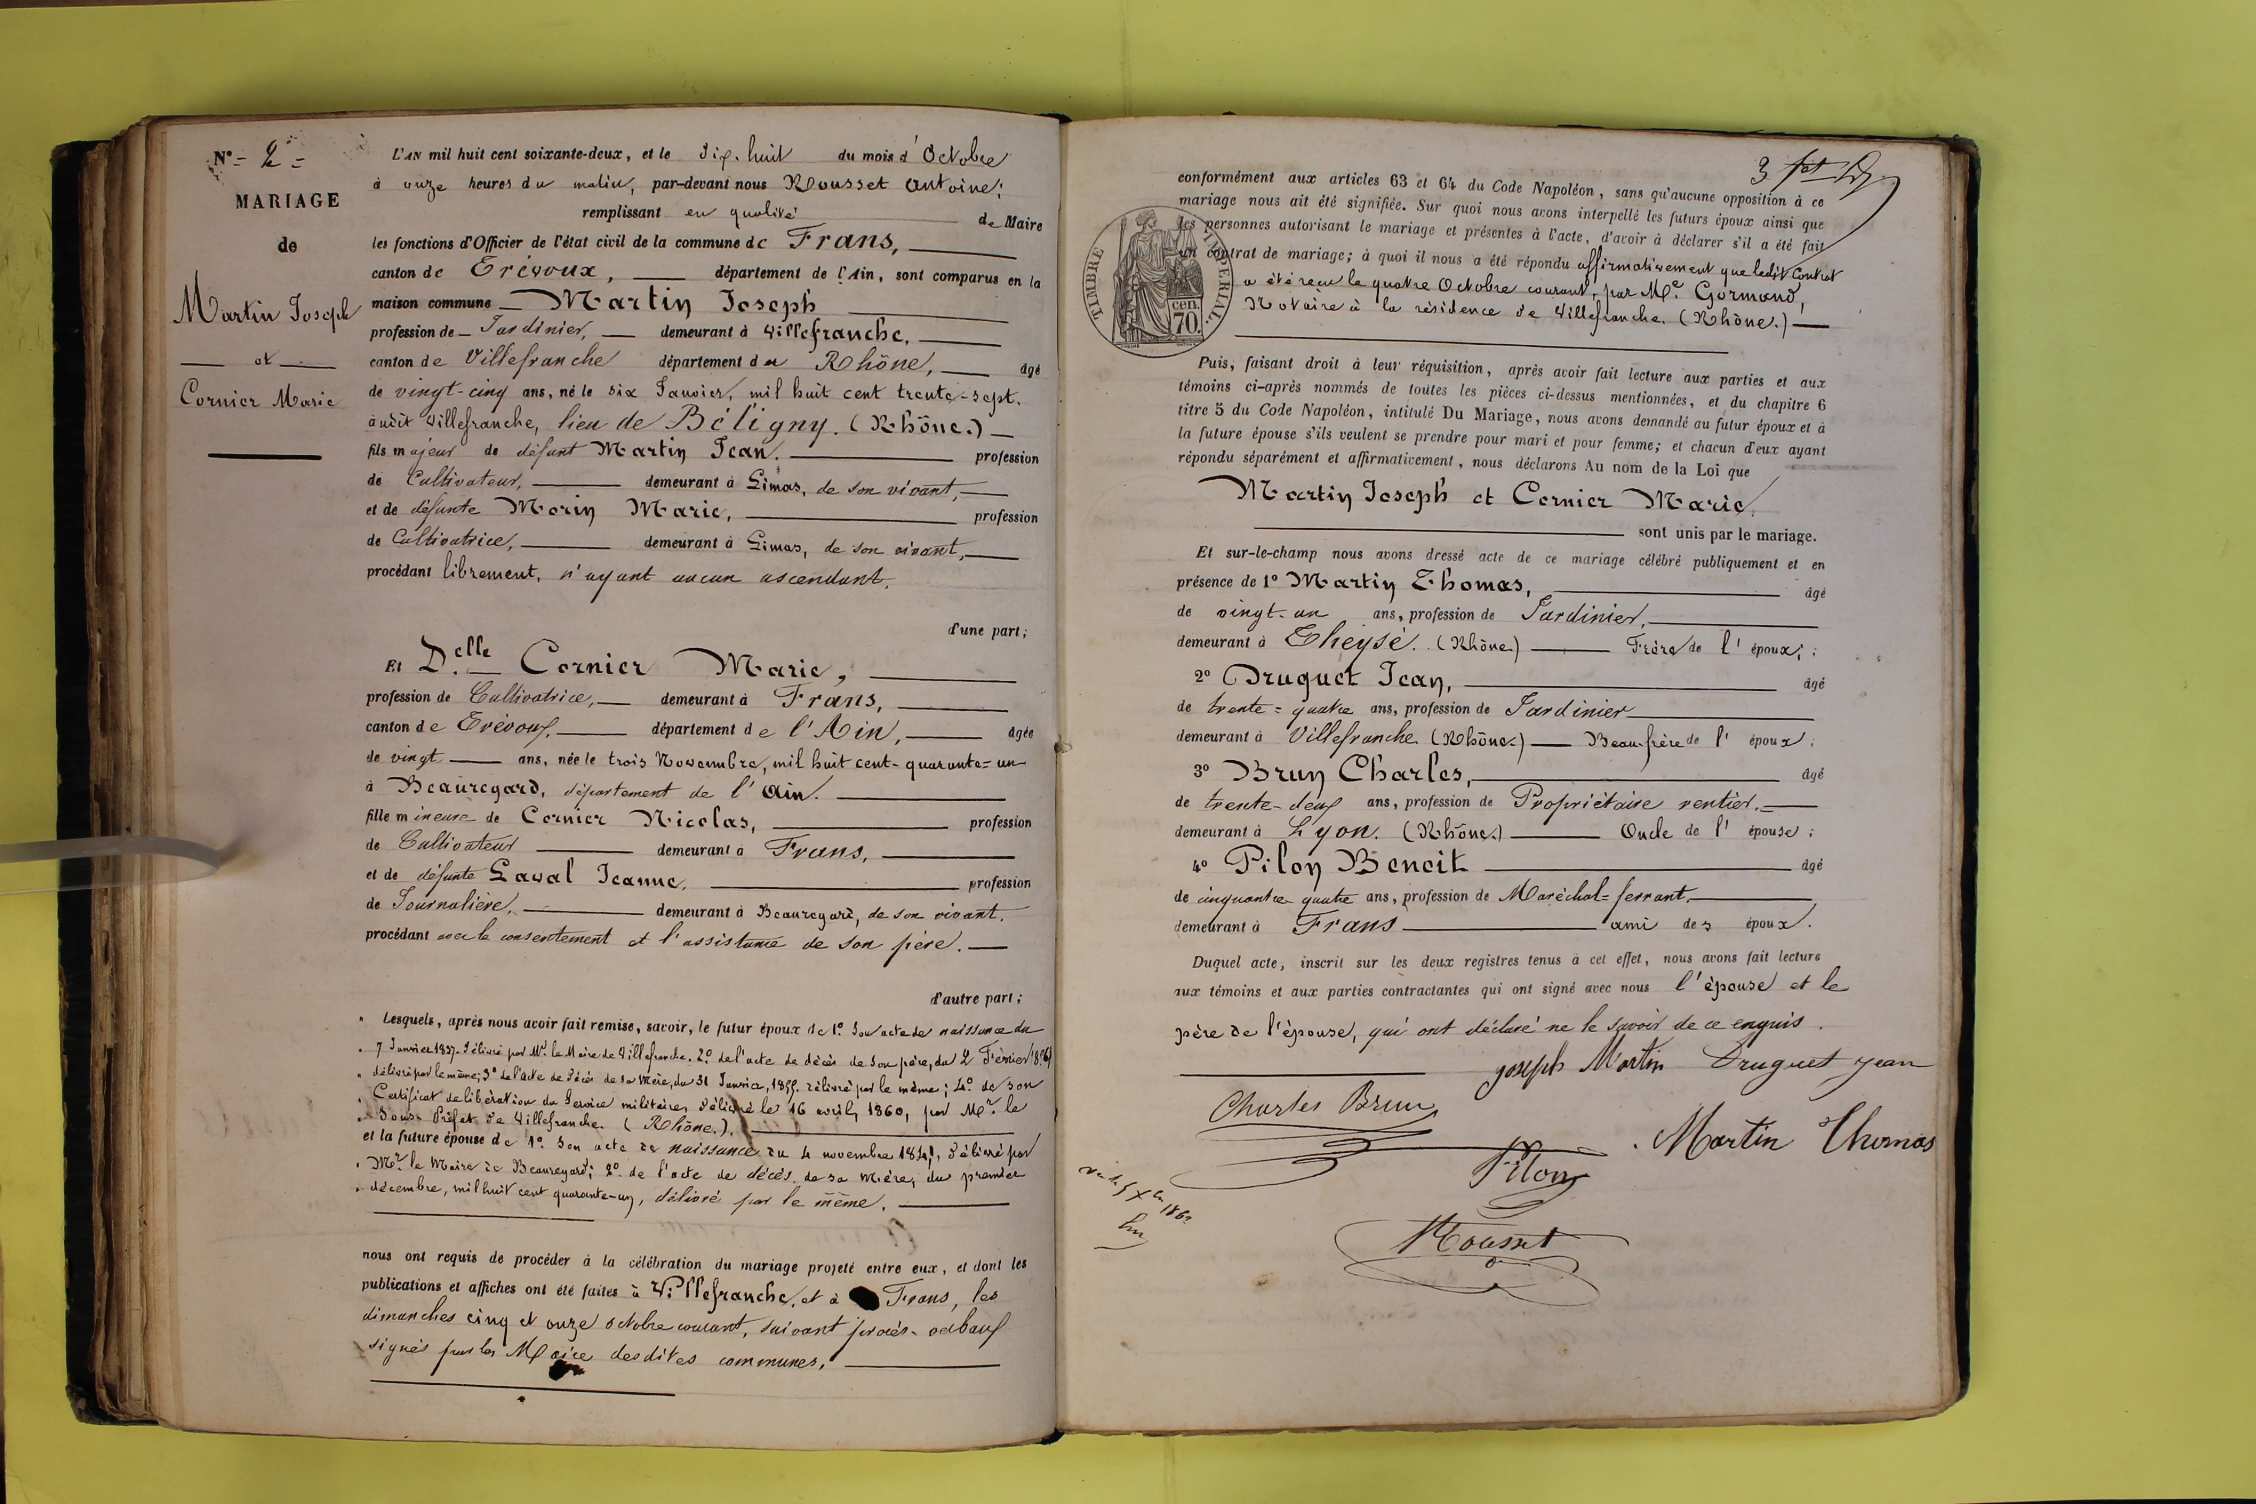 N° - 2 -
MARIAGE
de
Martin Joseph
et
Cornier Marie
L'AN mil huit cent soixante-deux, et le dix-huit du mois d'Octobre
à onze heures du matin, par-devant nous Rousset Antoine,
remplissant en qualité de Maire
les fonctions d'Officier de l'état civil de la commune de Frans,
canton de Trévoux, département de l'Ain, sont comparus en la
maison commune Martin Joseph
profession de Jardinier, demeurant à Villefranche,
canton de Villefranche département du Rhône, âgé
de vingt-cinq ans, né le six Janvier, mil huit cent trente-sept.
à udit Villefranche, lieu de Béligny. (Rhône.)
fils majeur de défunt Martin Jean. profession
de Cultivateur, demeurant à Limas, de son vivant,
et de défunte Morin Marie, profession
de Cultivatrice, demeurant à Limas, de son vivant,
procédant librement, n'ayant aucun ascendant.
d'une part;
Et D.elle Cornier Marie,
profession de Cultivatrice, demeurant à Frans,
canton de Trévoux, département de l'Ain, âgée
de vingt ans, née le trois Novembre, mil huit cent-quarante-un
à Beauregard, département de l'Ain.
fille mineure de Cornier Nicolas, profession
de Cultivateur demeurant à Frans,
et de défunte Laval Jeanne, profession
de Journalière, demeurant à Beauregard, de son vivant.
procédant avec le consentement et l'assistance de son père.
d'autre part;
Lesquels, après nous avoir fait remise, savoir, le futur époux de 1° Son acte de naissance du
7 Janvier 1837. délivré par Mr. le Maire de Villefranche. 2° de l'acte de décès de son père, du 2 Février
délivré par le même; 3° de l'acte de décès de sa mère, du 31 Janvier, délivré par le même; 4° de son
Certificat de libération du Service militaire, délivré le 16 avril, 1860, par Mr. le
Sous-Préfet de Villefranche. (Rhône.).
et la future épouse de 1° Son acte de naissance du 4 novembre 1841, délivré par
Mr. le Maire de Beauregard; 2° de l'acte de décès de sa mère, du premier
décembre, mil huit cent quarante-un, délivré par le même.
nous ont requis de procéder à la célébration du mariage projeté entre eux, et dont les
publications et affiches ont été faites à Villefranche, et à Frans, les
dimanches cinq et onze octobre courant, suivant procès-verbaux
signés par les Maire desdites communes.
3
conformément aux articles 63 et 64 du Code Napoléon, sans qu'aucune opposition à ce
mariage nous ait été signifiée. Sur quoi nous avons interpellé les futurs époux ainsi que
les personnes autorisant le mariage et présentes à l'acte, d'avoir à déclarer s'il a été fait
un contrat de mariage; à quoi il nous a été répondu affirmativement que ledit Contrat
a été reçu le quatre Octobre courant, par Me. Gormand,
Notaire à la résidence de Villefranche. (Rhône.)
TIMBRE IMPERIAL.
70 cen.
Puis, faisant droit à leur réquisition, après avoir fait lecture aux parties et aux
témoins ci-après nommés de toutes les pièces ci-dessus mentionnées, et du chapitre 6
titre 5 du Code Napoléon, intitulé Du Mariage, nous avons demandé au futur époux et à
la future épouse s'ils veulent se prendre pour mari et pour femme; et chacun d'eux ayant
répondu séparément et affirmativement, nous déclarons Au nom de la Loi que
Martin Joseph et Cornier Marie,
sont unis par le mariage.
Et sur-le-champ nous avons dressé acte de ce mariage célébré publiquement et en
présence de 1° Martin Thomas, âgé
de vingt-un ans, profession de Jardinier,
demeurant à Theysé. (Rhône) Frère de l'époux;
2° Druguet Jean, âgé
de trente-quatre ans, profession de Jardinier
demeurant à Villefranche (Rhône.) Beau-frère de l'époux;
3° Brun Charles, âgé
de trente-deux ans, profession de Propriétaire rentier.
demeurant à Lyon. (Rhône.) Oncle de l'épouse;
4° Pilon Benoit âgé
de cinquante-quatre ans, profession de Maréchal-ferrant,
demeurant à Frans ami des époux.
Duquel acte, inscrit sur les deux registres tenus à cet effet, nous avons fait lecture
aux témoins et aux parties contractantes qui ont signé avec nous l'épouse et le
père de l'épouse, qui ont déclaré ne le savoir de ce enquis.
joseph Martin Druguet jean
Charles Brun
Martin Thomas
Pilon
Rousset